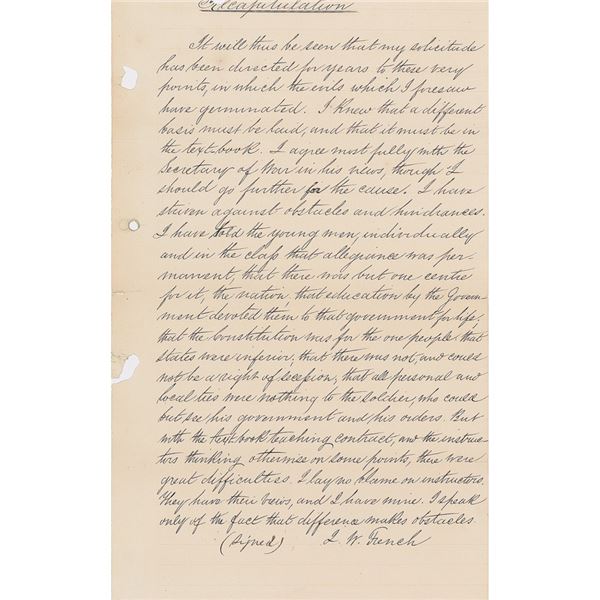 Recapitulation
It will thus be seen that my solicitude
has been directed for years to these very
points, in which the evils which I foresaw
have germinated. I knew that a different
basis must be laid, and that it must be in
the text-book. I agree most fully with the
Secretary of War in his views, though I
should go further for the cause. I have
striven against obstacles and hindrances.
I have told the young men, individually
and in the class that allegiance was per-
manent, that there was but one centre
for it, the nation, that education by the Govern-
ment devoted them to that government for life,
that the Constitution was for the one people, that
states were inferior, that there was not, and could
not be a right of secession, that all personal and
local ties were nothing to the soldier, who could
but see his government and his orders. But
with the text-book teaching contract, and the instruc-
tors thinking otherwise on some points, there were
great difficulties. I lay no blame on instructors.
They have their views, and I have mine. I speak
only of the fact that difference makes obstacles.
(Signed) J. W. French